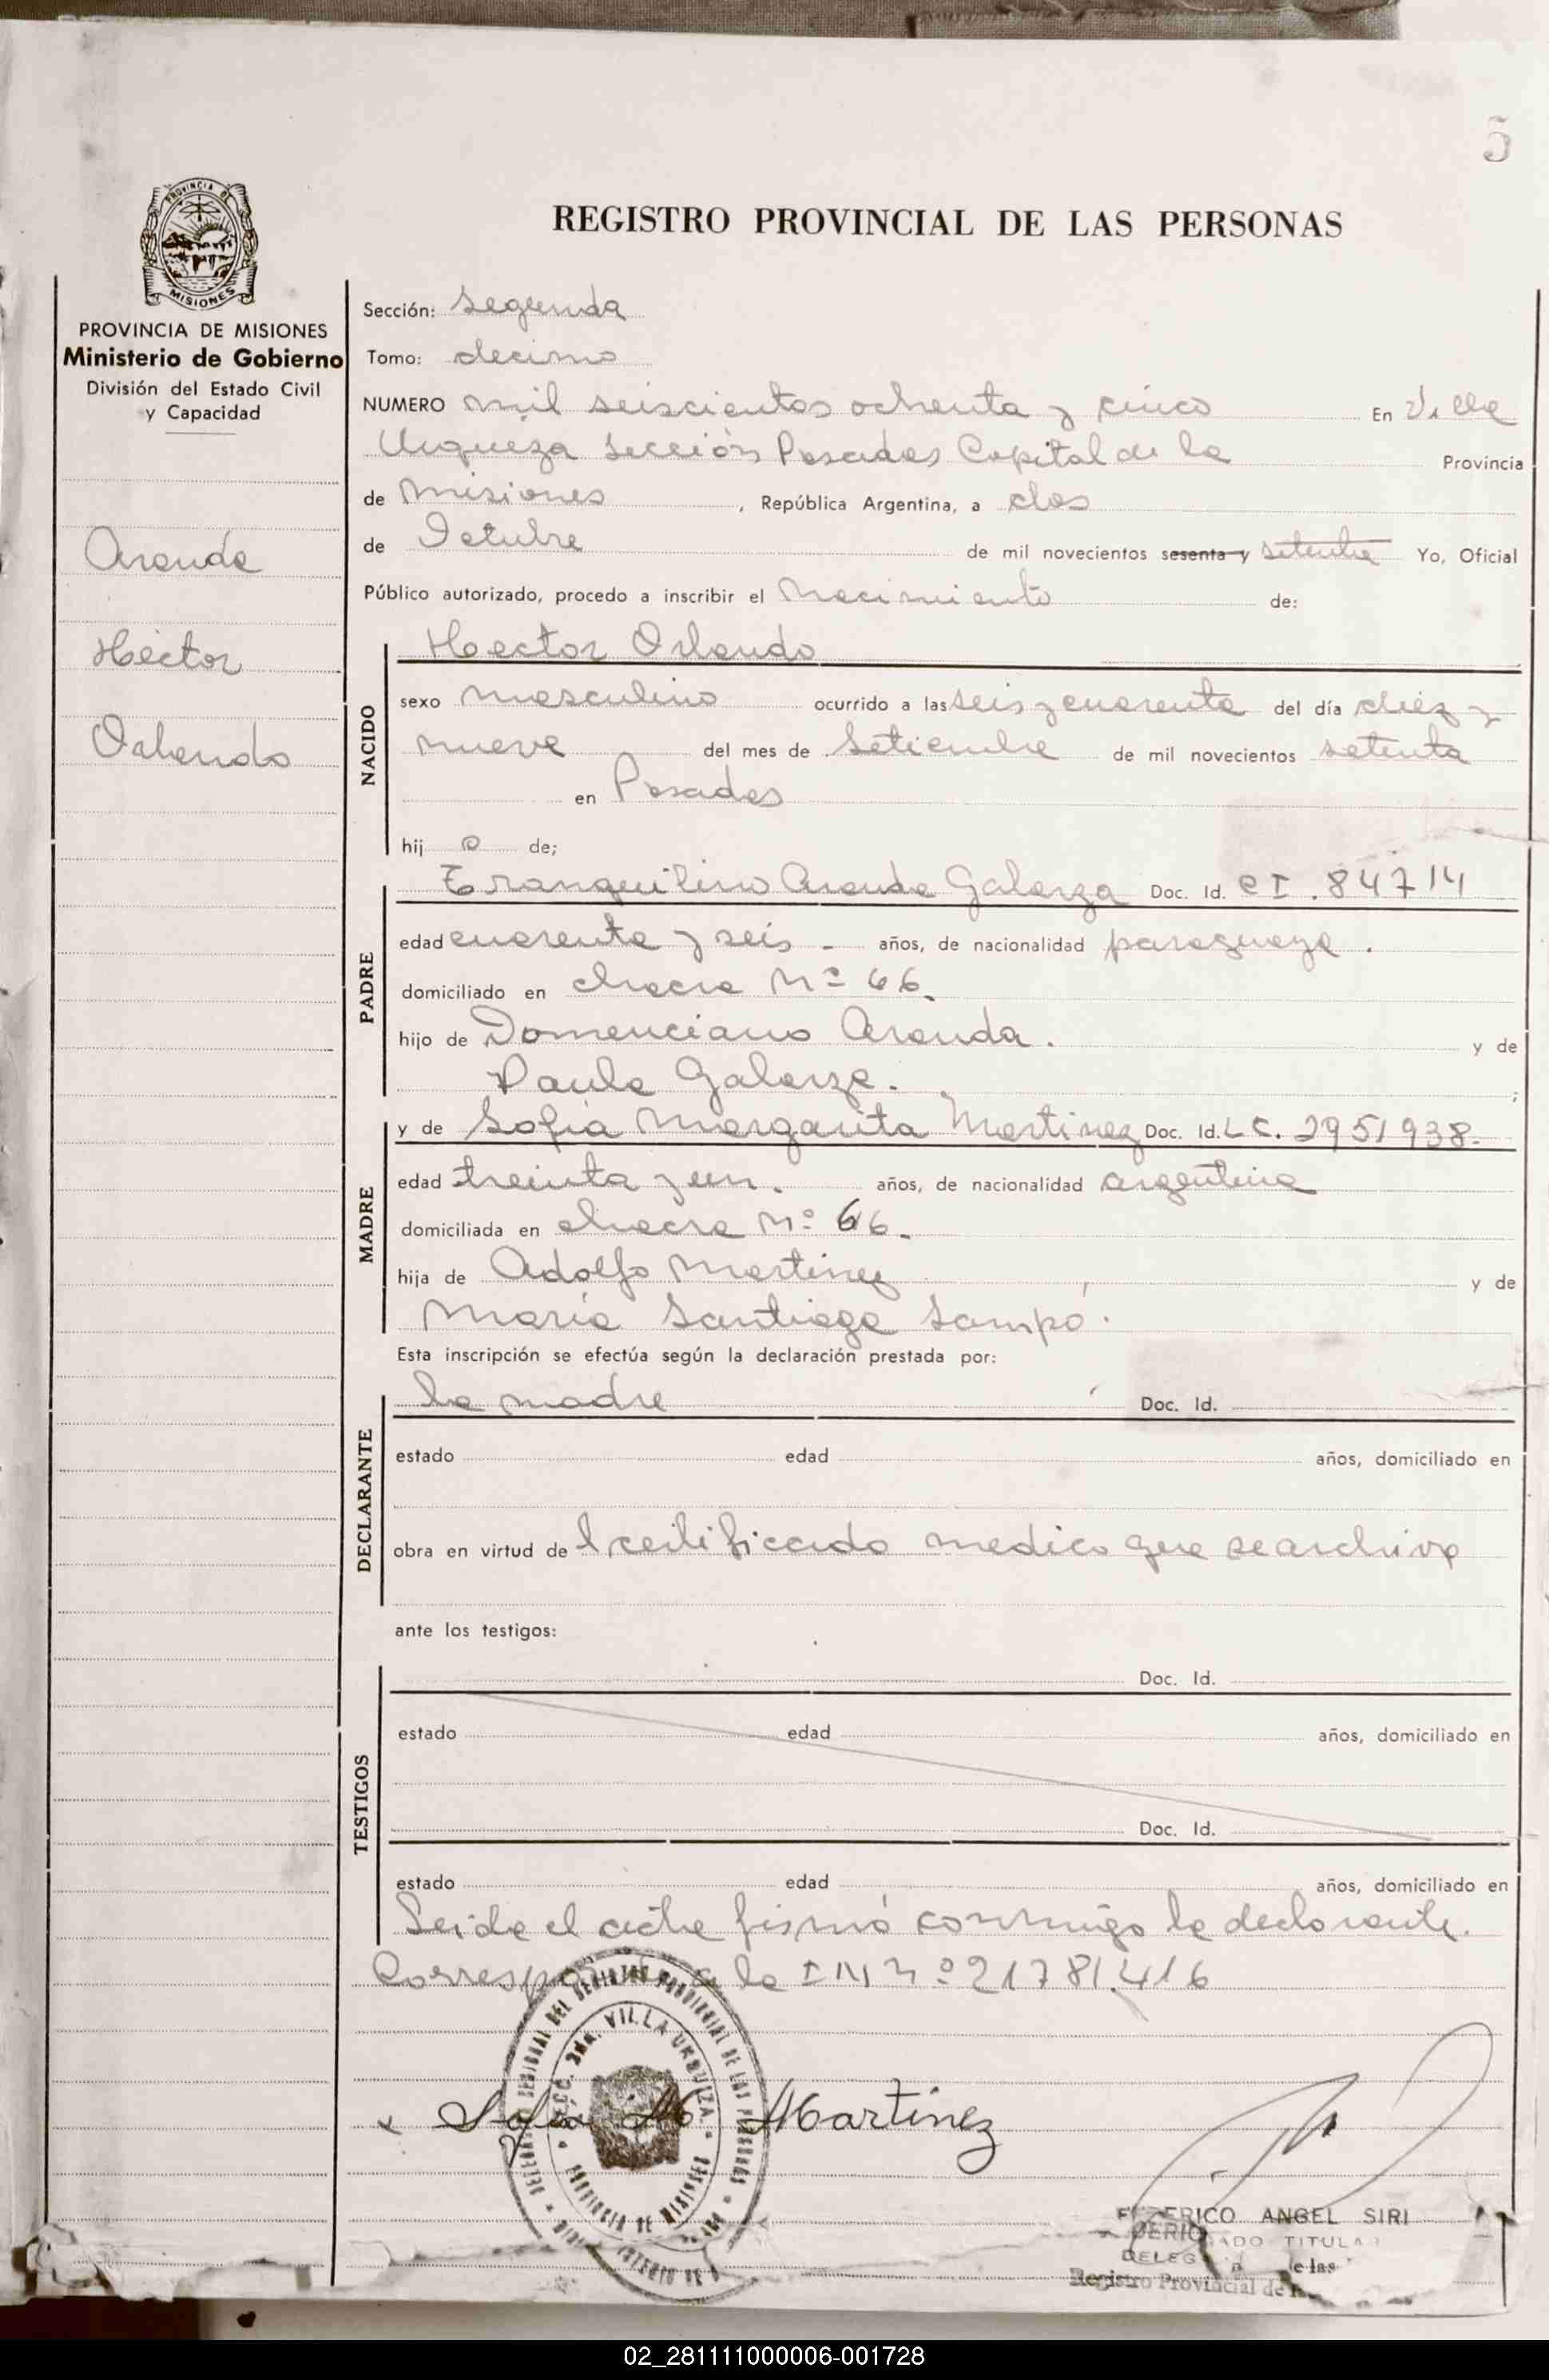 5
PROVINCIA DE
MISIONES
REGISTRO PROVINCIAL DE LAS PERSONAS
PROVINCIA DE MISIONES
Ministerio de Gobierno
División del Estado Civil
y Capacidad
Aranda
Héctor
Orlando
Sección: Segunda
Tomo: decimo
NUMERO mil seiscientos ochenta y cinco En Villa
Urquiza Sección Posadas Capital de la Provincia
de Misiones, República Argentina, a dos
de Octubre de mil novecientos sesenta y setenta Yo, Oficial
Público autorizado, procedo a inscribir el Nacimiento de:
NACIDO
Hector Orlando
sexo masculino ocurrido a las seis y cuarenta del día diez y
nueve del mes de Setiembre de mil novecientos setenta
en Posadas
hij o de;
PADRE
Tranquilino Aranda Galarza Doc. Id. CI. 84714
edad cuarenta y seis - años, de nacionalidad paraguaya.
domiciliado en chacra Nº 66.
hijo de Domenciano Aranda. y de
Paula Galarza. ;
MADRE
y de Sofia Margarita Martinez Doc. Id. LC. 2951938.
edad treinta y un. años, de nacionalidad argentina
domiciliada en chacra Nº 66.
hija de Adolfo Martinez y de
Maria Santiaga Sampó.
Esta inscripción se efectúa según la declaración prestada por:
DECLARANTE
la madre Doc. Id.
estado edad años, domiciliado en
obra en virtud de l certificado medico que se archiva
ante los testigos:
TESTIGOS
Doc. Id.
estado edad años, domiciliado en
Doc. Id.
estado edad años, domiciliado en
Leida el acta firmó conmigo la declarante.
Corresponde a la IN Nº 21781.416
VILLA URQUIZA
PROVINCIA DE MISIONES
x Sofia M Martinez
FEDERICO ANGEL SIRI
TITULAR
Registro Provincial de
02_281111000006-001728